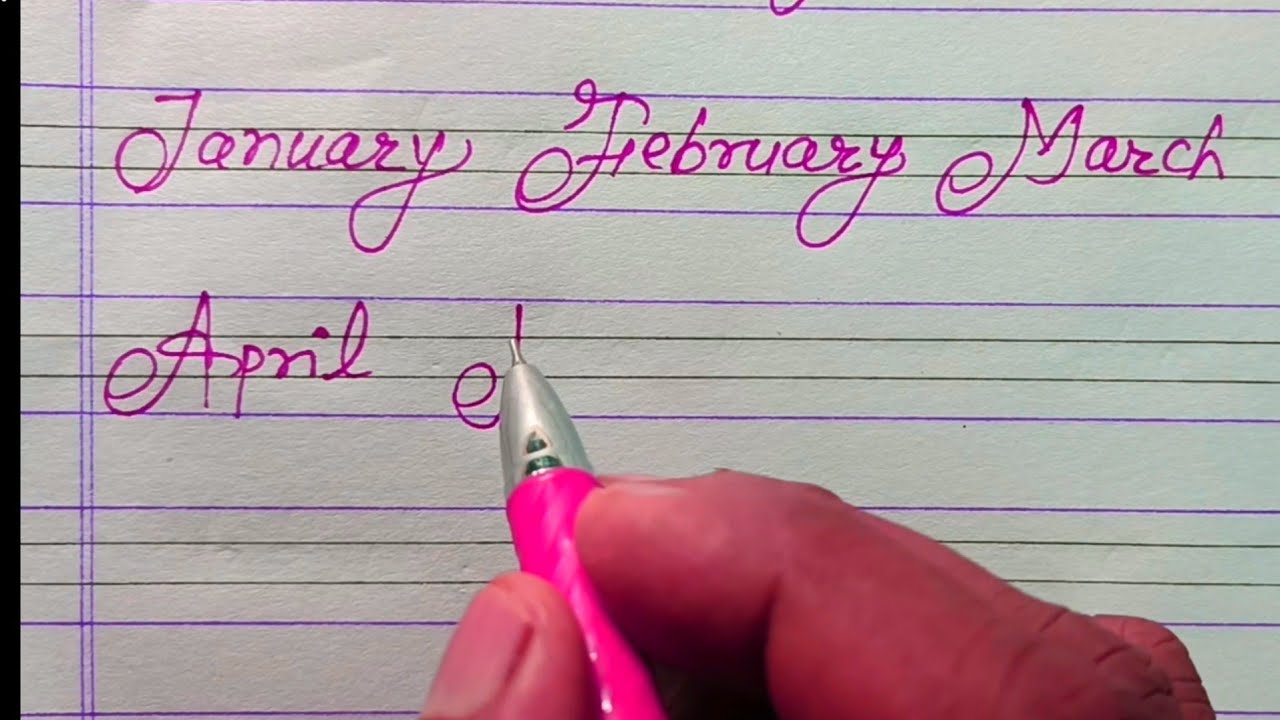 January February March
April